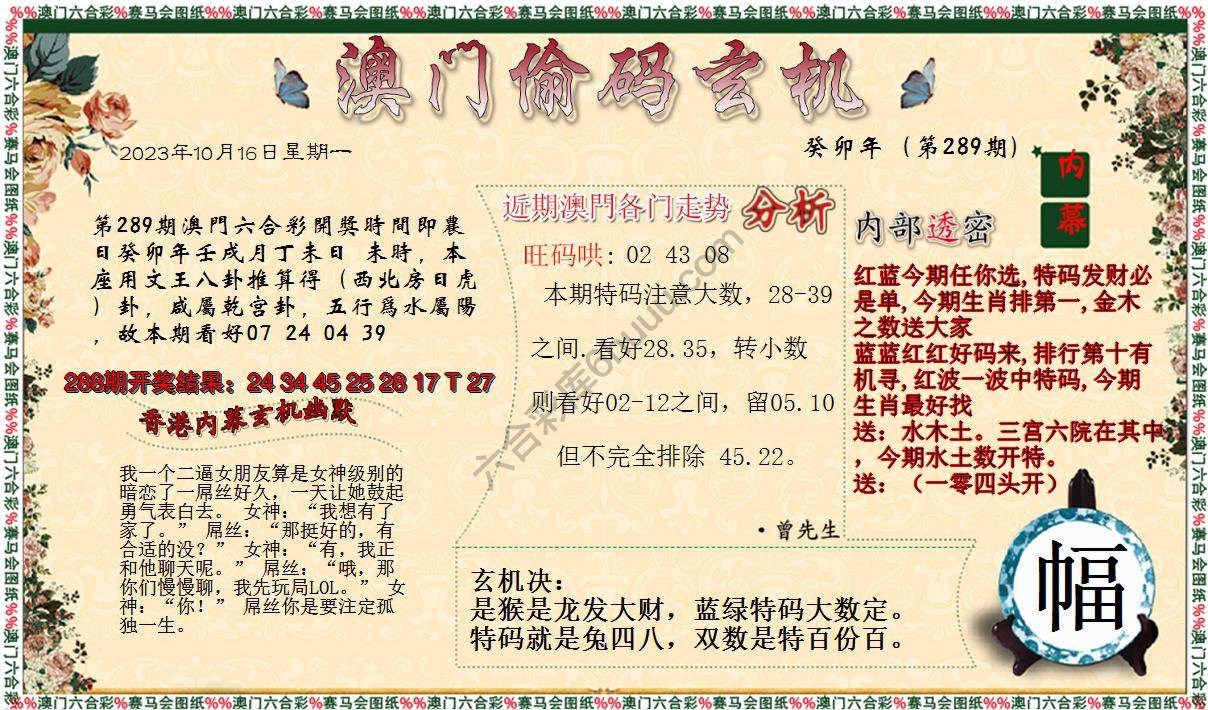 %%澳门六合彩%赛马会图纸%%澳门六合彩%赛马会图纸%%澳门六合彩%赛马会图纸%%澳门六合彩%赛马会图纸%%澳门六合彩%赛马会图纸%%澳门六合彩%赛马会图纸%%
澳门偷码玄机
2023年10月16日星期一
癸卯年（第289期）
第289期澳門六合彩開獎時間即農
日癸卯年壬戌月丁未日 未時，本
座用文王八卦推算得（西北房日虎
）卦，咸屬乾宫卦，五行爲水屬陽
，故本期看好07 24 04 39
288期开奖结果：24 34 45 25 28 17 T 27
香港内幕玄机幽默
我一个二逼女朋友算是女神级别的
暗恋了一屌丝好久，一天让她鼓起
勇气表白去。 女神：“我想有了
家了。” 屌丝：“那挺好的，有
合适的没？” 女神：“有，我正
和他聊天呢。” 屌丝：“哦，那
你们慢慢聊，我先玩局LOL。” 女
神：“你！” 屌丝你是要注定孤
独一生。
近期澳門各门走势 分析
旺码哄: 02 43 08
本期特码注意大数，28-39
之间.看好28.35，转小数
则看好02-12之间，留05.10
但不完全排除 45.22。
·曾先生
玄机决：
是猴是龙发大财，蓝绿特码大数定。
特码就是兔四八，双数是特百份百。
内部透密
内
幕
红蓝今期任你选,特码发财必
是单,今期生肖排第一,金木
之数送大家
蓝蓝红红好码来,排行第十有
机寻,红波一波中特码,今期
生肖最好找
送：水木土。三宫六院在其中
，今期水土数开特。
送：（一零四头开）
幅
%%澳门六合彩%赛马会图纸%%澳门六合彩%赛马会图纸%%澳门六合彩%赛马会图纸%%澳门六合彩%赛马会图纸%%澳门六合彩%赛马会图纸%%澳门六合彩%赛马会图纸%%